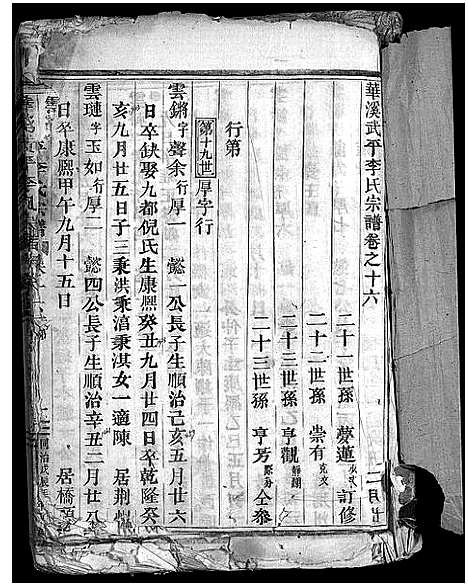 華溪武平李氏宗譜卷之十六
二十一世孫 夢蓮 訂修
二十二世孫 崇有 克文
二十三世孫 亨觀
二十三世孫 亨芳 仝參
行第
第十九世 厚字行
雲鏘字聲余行厚一 懿一公長子生順治己亥五月廿六
日卒缺娶九都倪氏生康熙癸丑九月廿四日卒乾隆癸
亥九月廿五日子三秉洪秉湻秉淇女一適陳 居荆州
雲璉字玉如行厚二 懿四公長子生順治辛丑二月廿八
日卒康熙甲午九月十五日 居橋頭